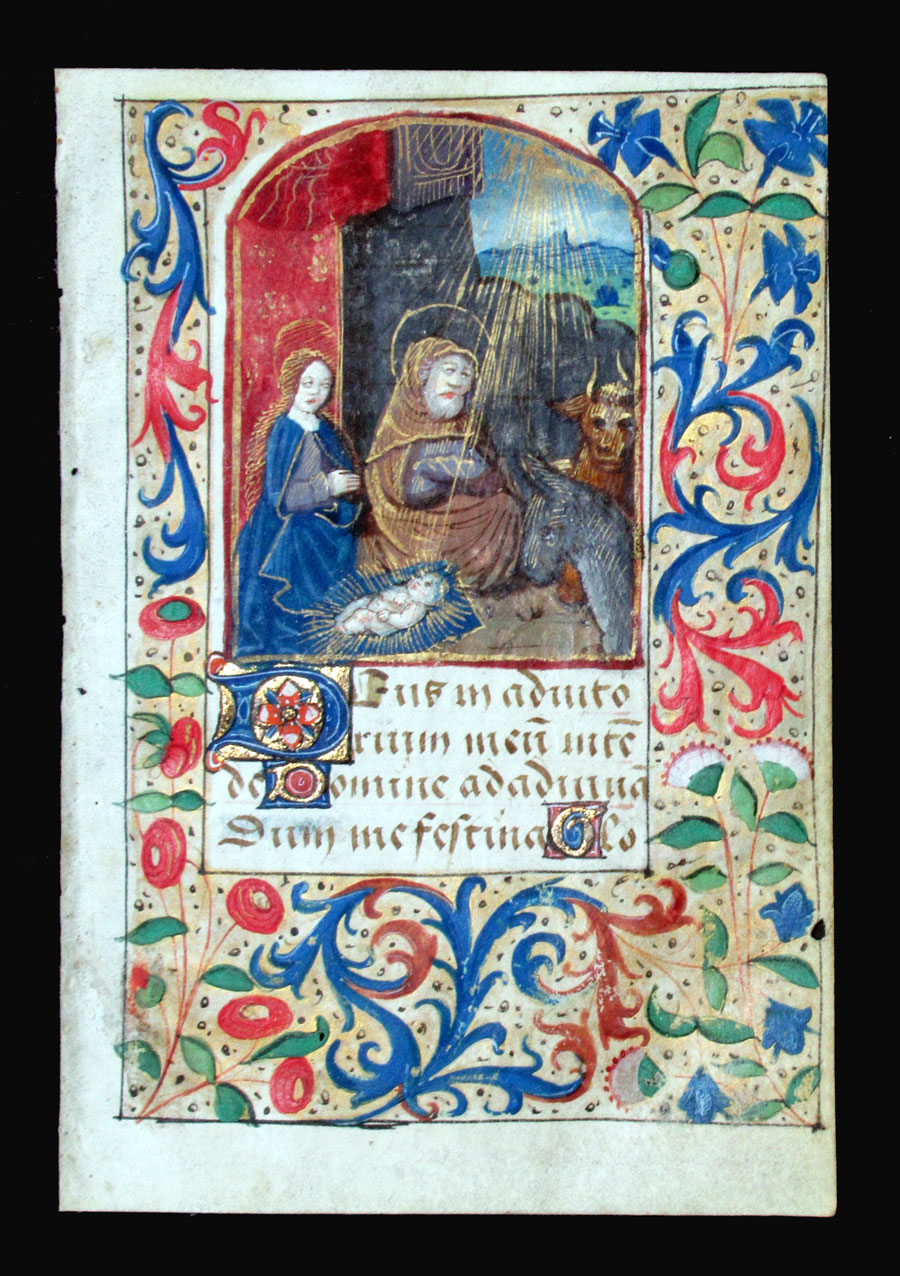 DEus in adiuto
rium meū intē
de Domine ad adiuuā
dum me festina Glo